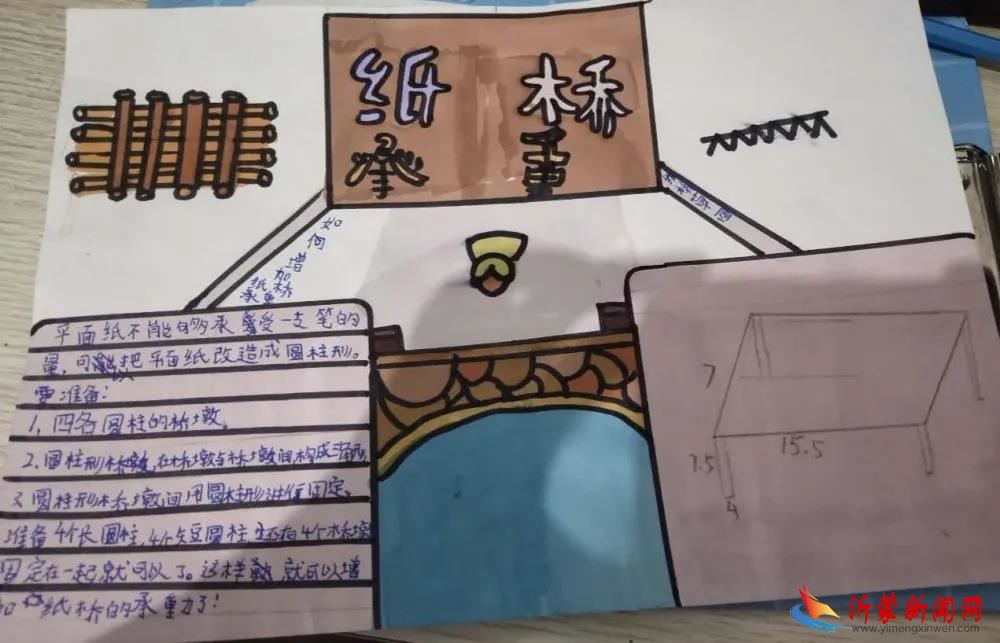 纸 桥
承 重
如何增加纸桥承重
平面纸不能够承受一支笔的
量,可以把平面纸改造成圆柱形。
要准备:
1,四各圆柱的桥墩。
2.圆柱形桥墩,在桥墩与桥墩间构成
3.圆柱形桥墩间用圆柱形进行固定。
准备4个长圆柱,4个矢豆圆柱还有4个桥墩
固定在一起就可以了。这样就可以增
加纸桥的承重力了!
7
15.5
7.5
4
沂蒙新闻网
www.yimengxinwen.com